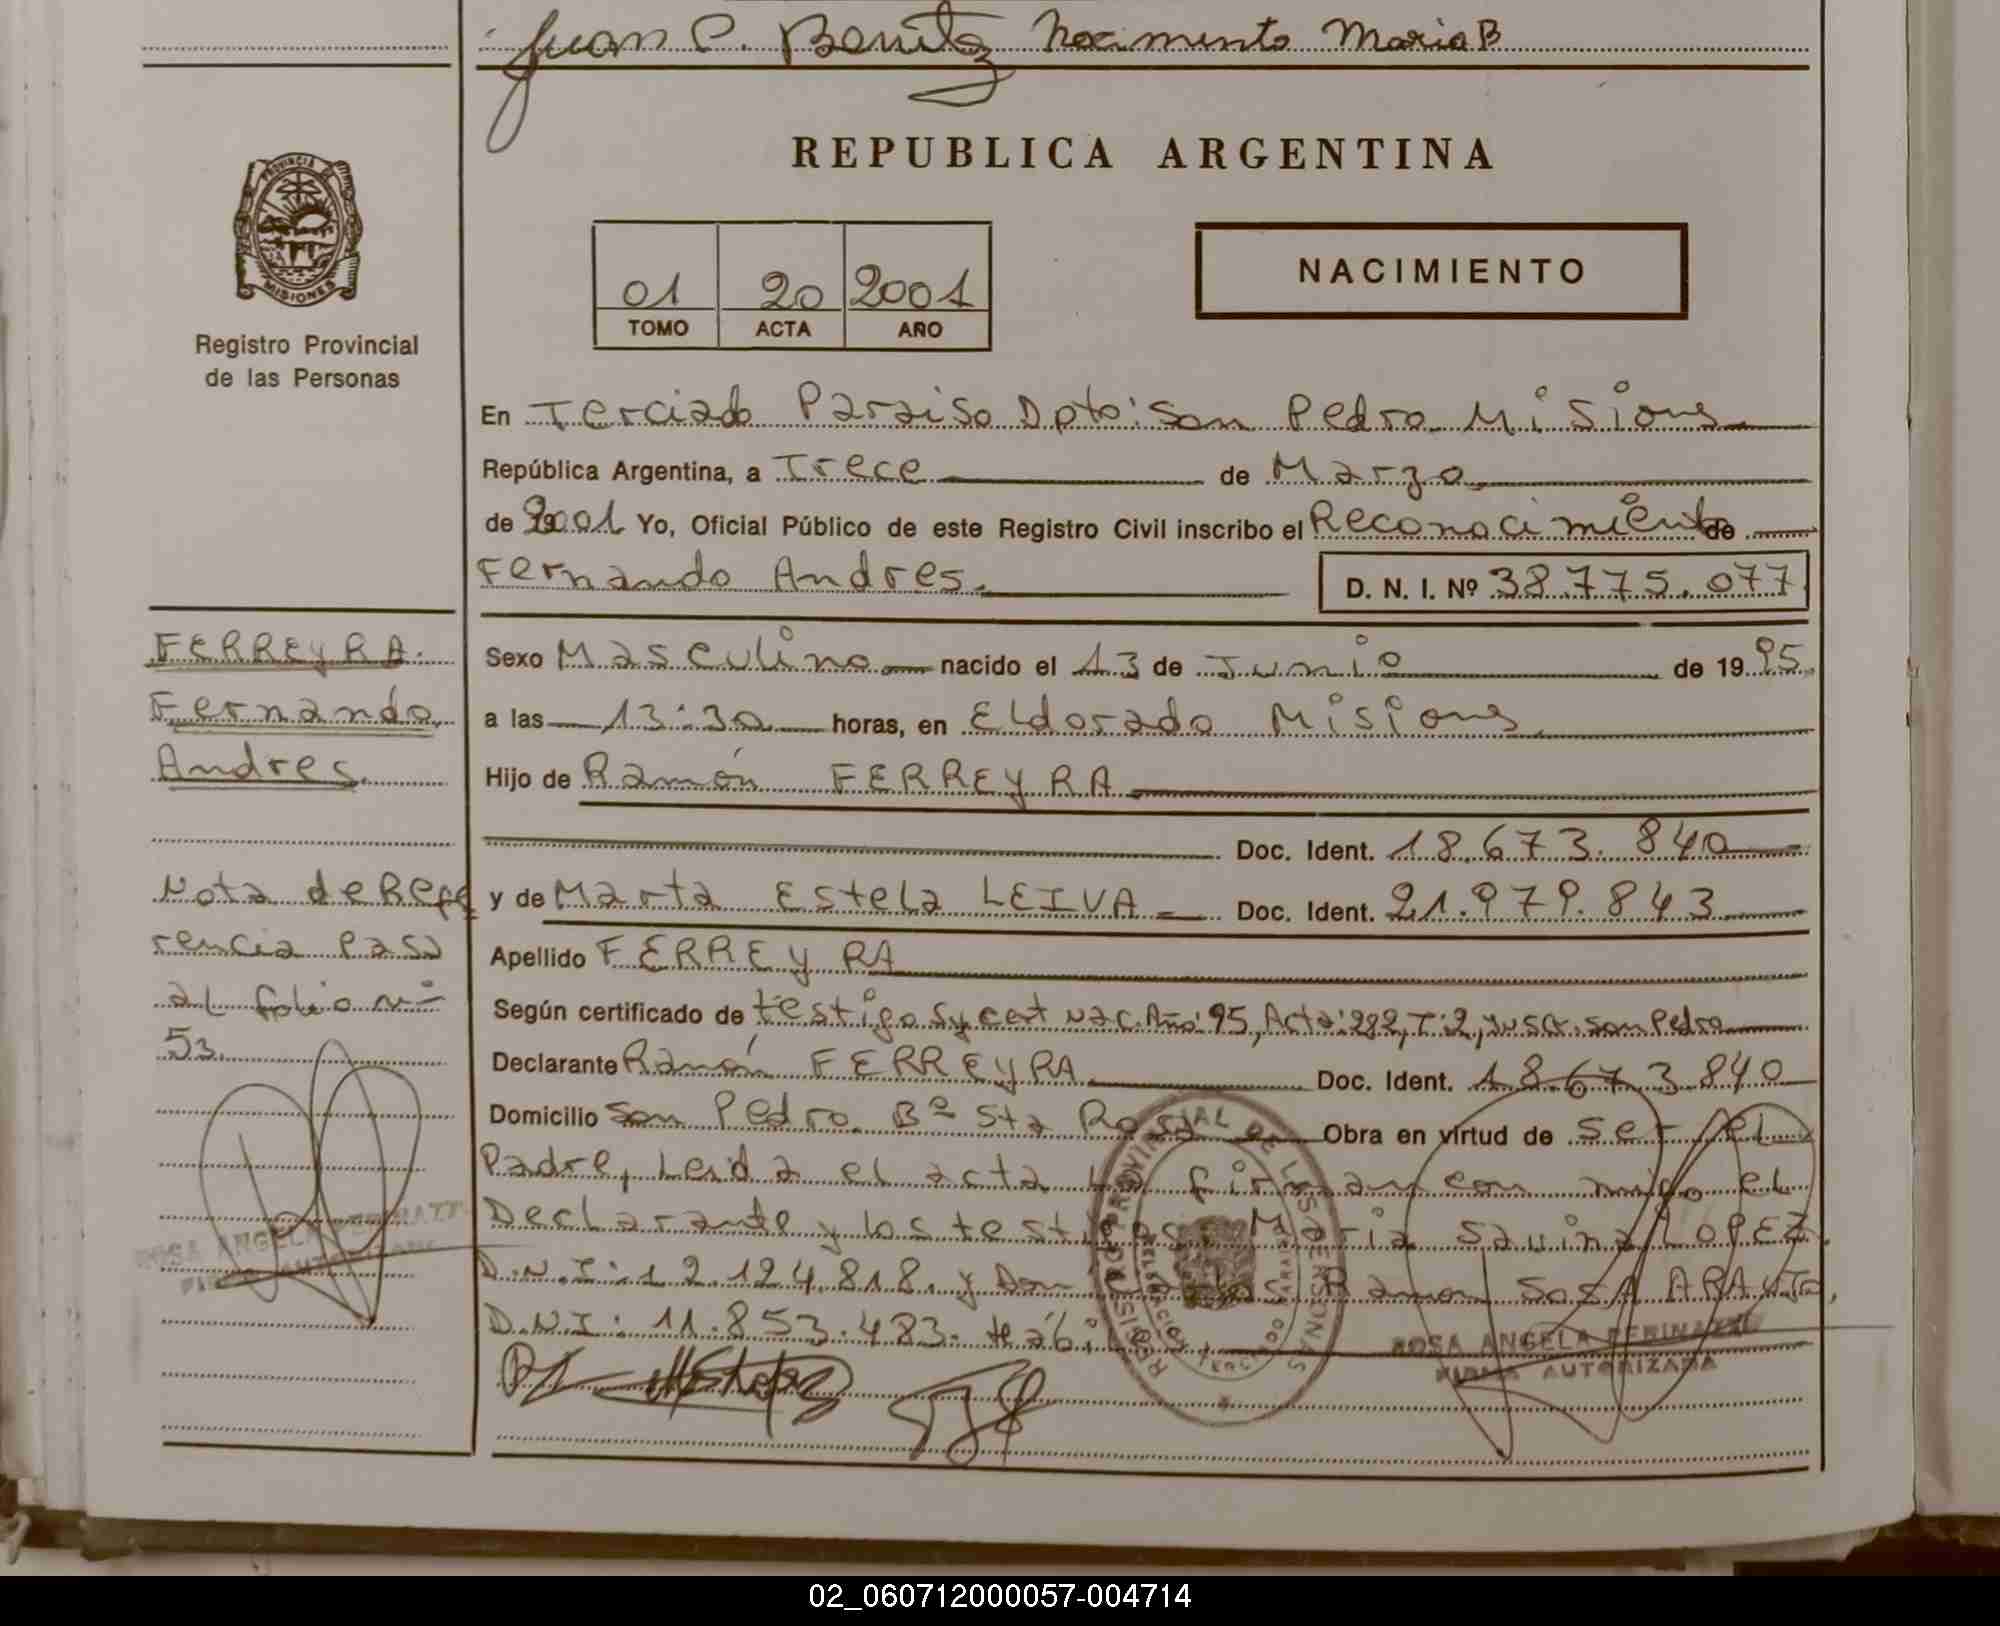 Juan C. Benitez Nacimento Maria B
PROVINCIA DE
MISIONES
REPUBLICA ARGENTINA
01 20 2001
TOMO ACTA AÑO
NACIMIENTO
Registro Provincial
de las Personas
En Terciado Paraiso Dpto: San Pedro Misiones
República Argentina, a Trece de Marzo
de 2001 Yo, Oficial Público de este Registro Civil inscribo el Reconocimiento de
Fernando Andres. D. N. I. Nº 38.775.077
FERREYRA
Fernando
Andres
Sexo Masculino nacido el 13 de Junio de 1995
a las 13:30 horas, en Eldorado Misiones
Hijo de Ramón FERREYRA
Doc. Ident. 18.673.840
y de Marta Estela LEIVA Doc. Ident. 21.979.843
Nota de Refe
rencia pasa
al folio nº
53.
Apellido FERREYRA
Según certificado de testigos y cert nac. Año: 95, Acta: 282, T: 2, San Pedro
Declarante Ramón FERREYRA Doc. Ident. 18.673.840
Domicilio San Pedro Bº Sta Rosa Obra en virtud de ser el
Padre, Leida el acta la firman con migo el
Declarante y los testigos Maria Savina LOPEZ
D.N.I: 12.124.818. y Don Ramon SOSA ARAUJO,
D.N.I: 11.853.483. Hábiles
ROSA ANGELA PERINAZZO
FIRMA AUTORIZADA
ROSA ANGELA PERINAZZO
FIRMA AUTORIZADA
REGISTRO PROVINCIAL DE LAS PERSONAS
DELEGACION TERCIADO PARAISO
02_060712000057-004714